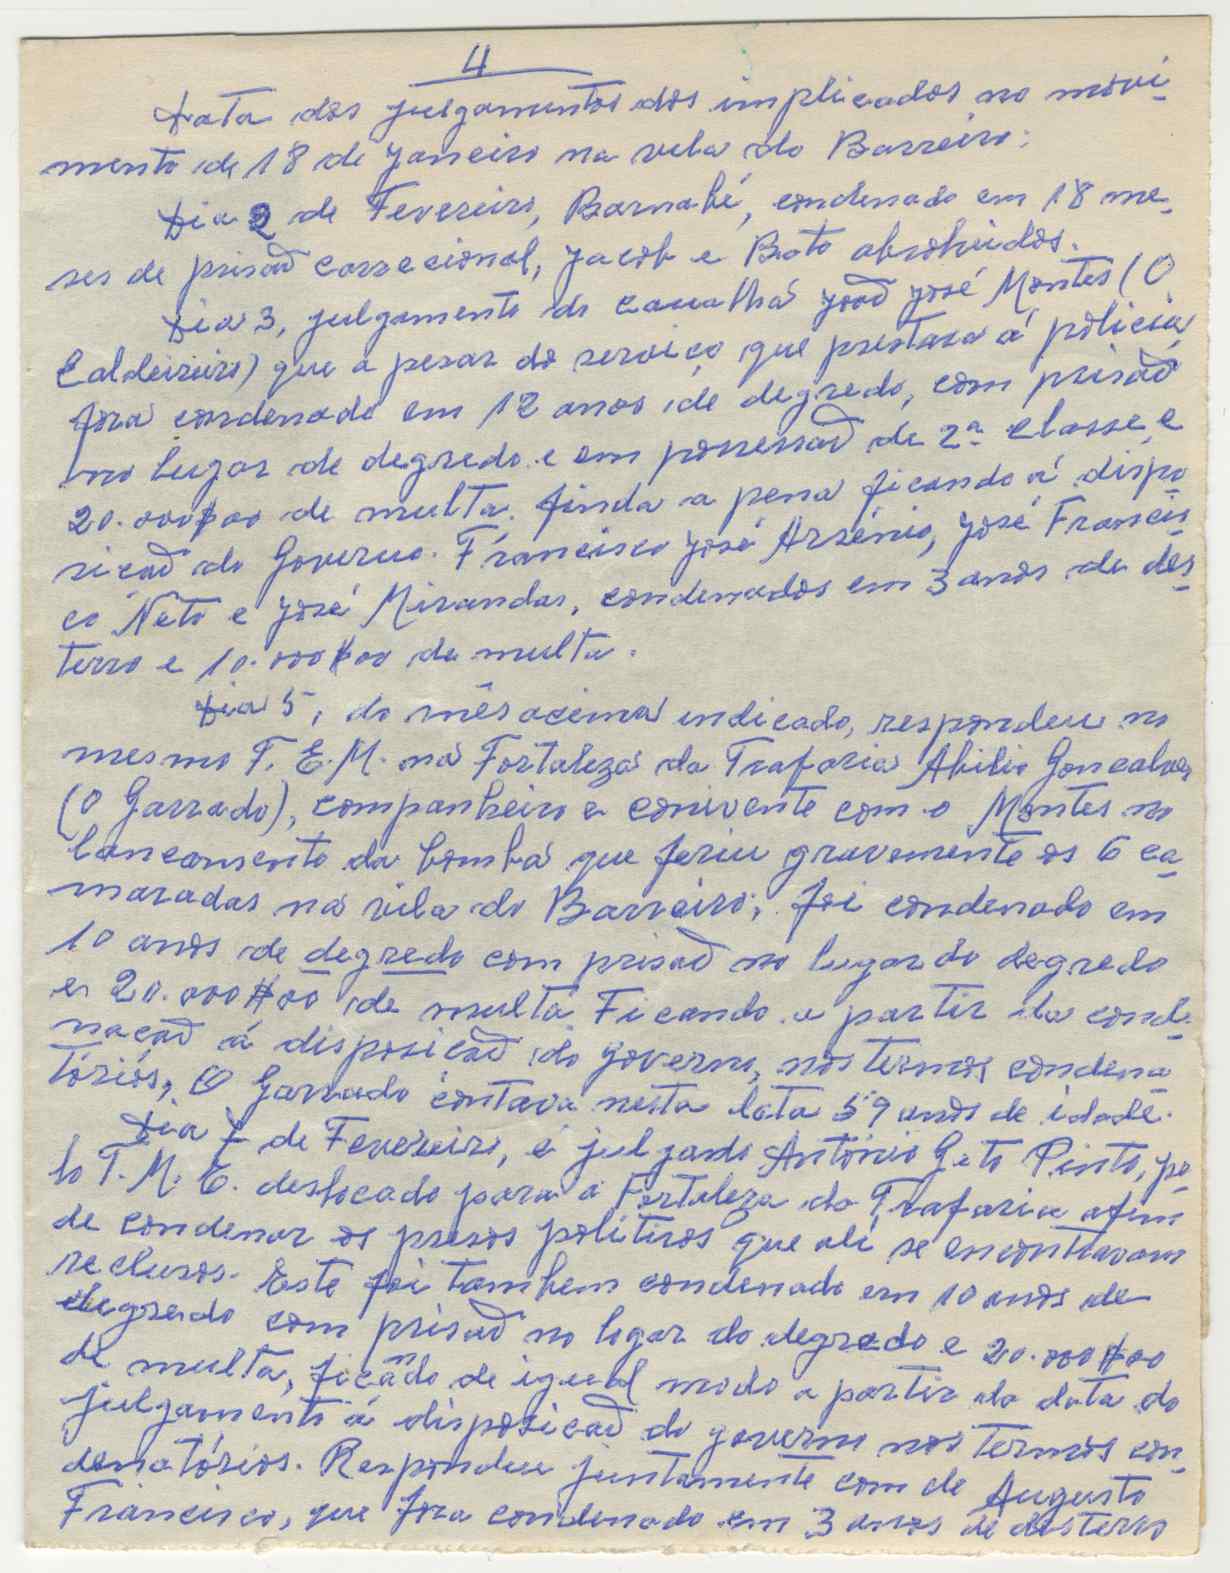 4
Data dos julgamentos dos implicados no movi-
mento de 18 de Janeiro na vila do Barreiro:
Dia 2 de Fevereiro, Barnabé, condenado em 18 me-
ses de prisaõ correcional, Jacob e Boto absolvidos.
Dia 3, julgamento do canalha João José Montes (O
Caldeireiro) que a pesar do serviço que prestava á policia,
fora condenado em 12 anos de degredo, com prisaõ
no lugar de degredo e em possessaõ de 2ª classe, e
20.000$00 de multa, finda a pena ficando á dispo-
sicaõ do Governo. Francisco José Arsénio, José Francis-
co Neto e José Miranda, condenados em 3 anos de des-
terro e 10.000$00 de multa.
Dia 5, do mês acima indicado, respondeu no
mesmo T. E. M. na Fortaleza da Trafaria Abilio Goncalves
(O Garrado), companheiro e conivente com o Montes no
lancamento da bomba que feriu gravemente os 6 ca-
maradas na vila do Barreiro; foi condenado em
10 anos de degredo com prisaõ no lugar do degredo
e 20.000$00 de multa Ficando a partir da conde-
nacaõ á disposicaõ do governo, nos termos condena-
tórios, O Garrado contava nesta data 59 anos de idade.
Dia 7 de Fevereiro, é julgado António Gato Pinto, pe-
lo T. M. E. deslocado para a Fortaleza da Trafaria afim
de condenar os presos politicos que ali se encontravam
reclusos. Este foi tambem condenado em 10 anos de
degredo com prisaõ no logar do degredo e 20.000$00
de multa, ficando de igual modo a partir da data do
julgamento á disposicaõ do governo nos termos con-
denatórios. Respondeu juntamente com de Augusto
Francisco, que fora condenado em 3 anos de desterro